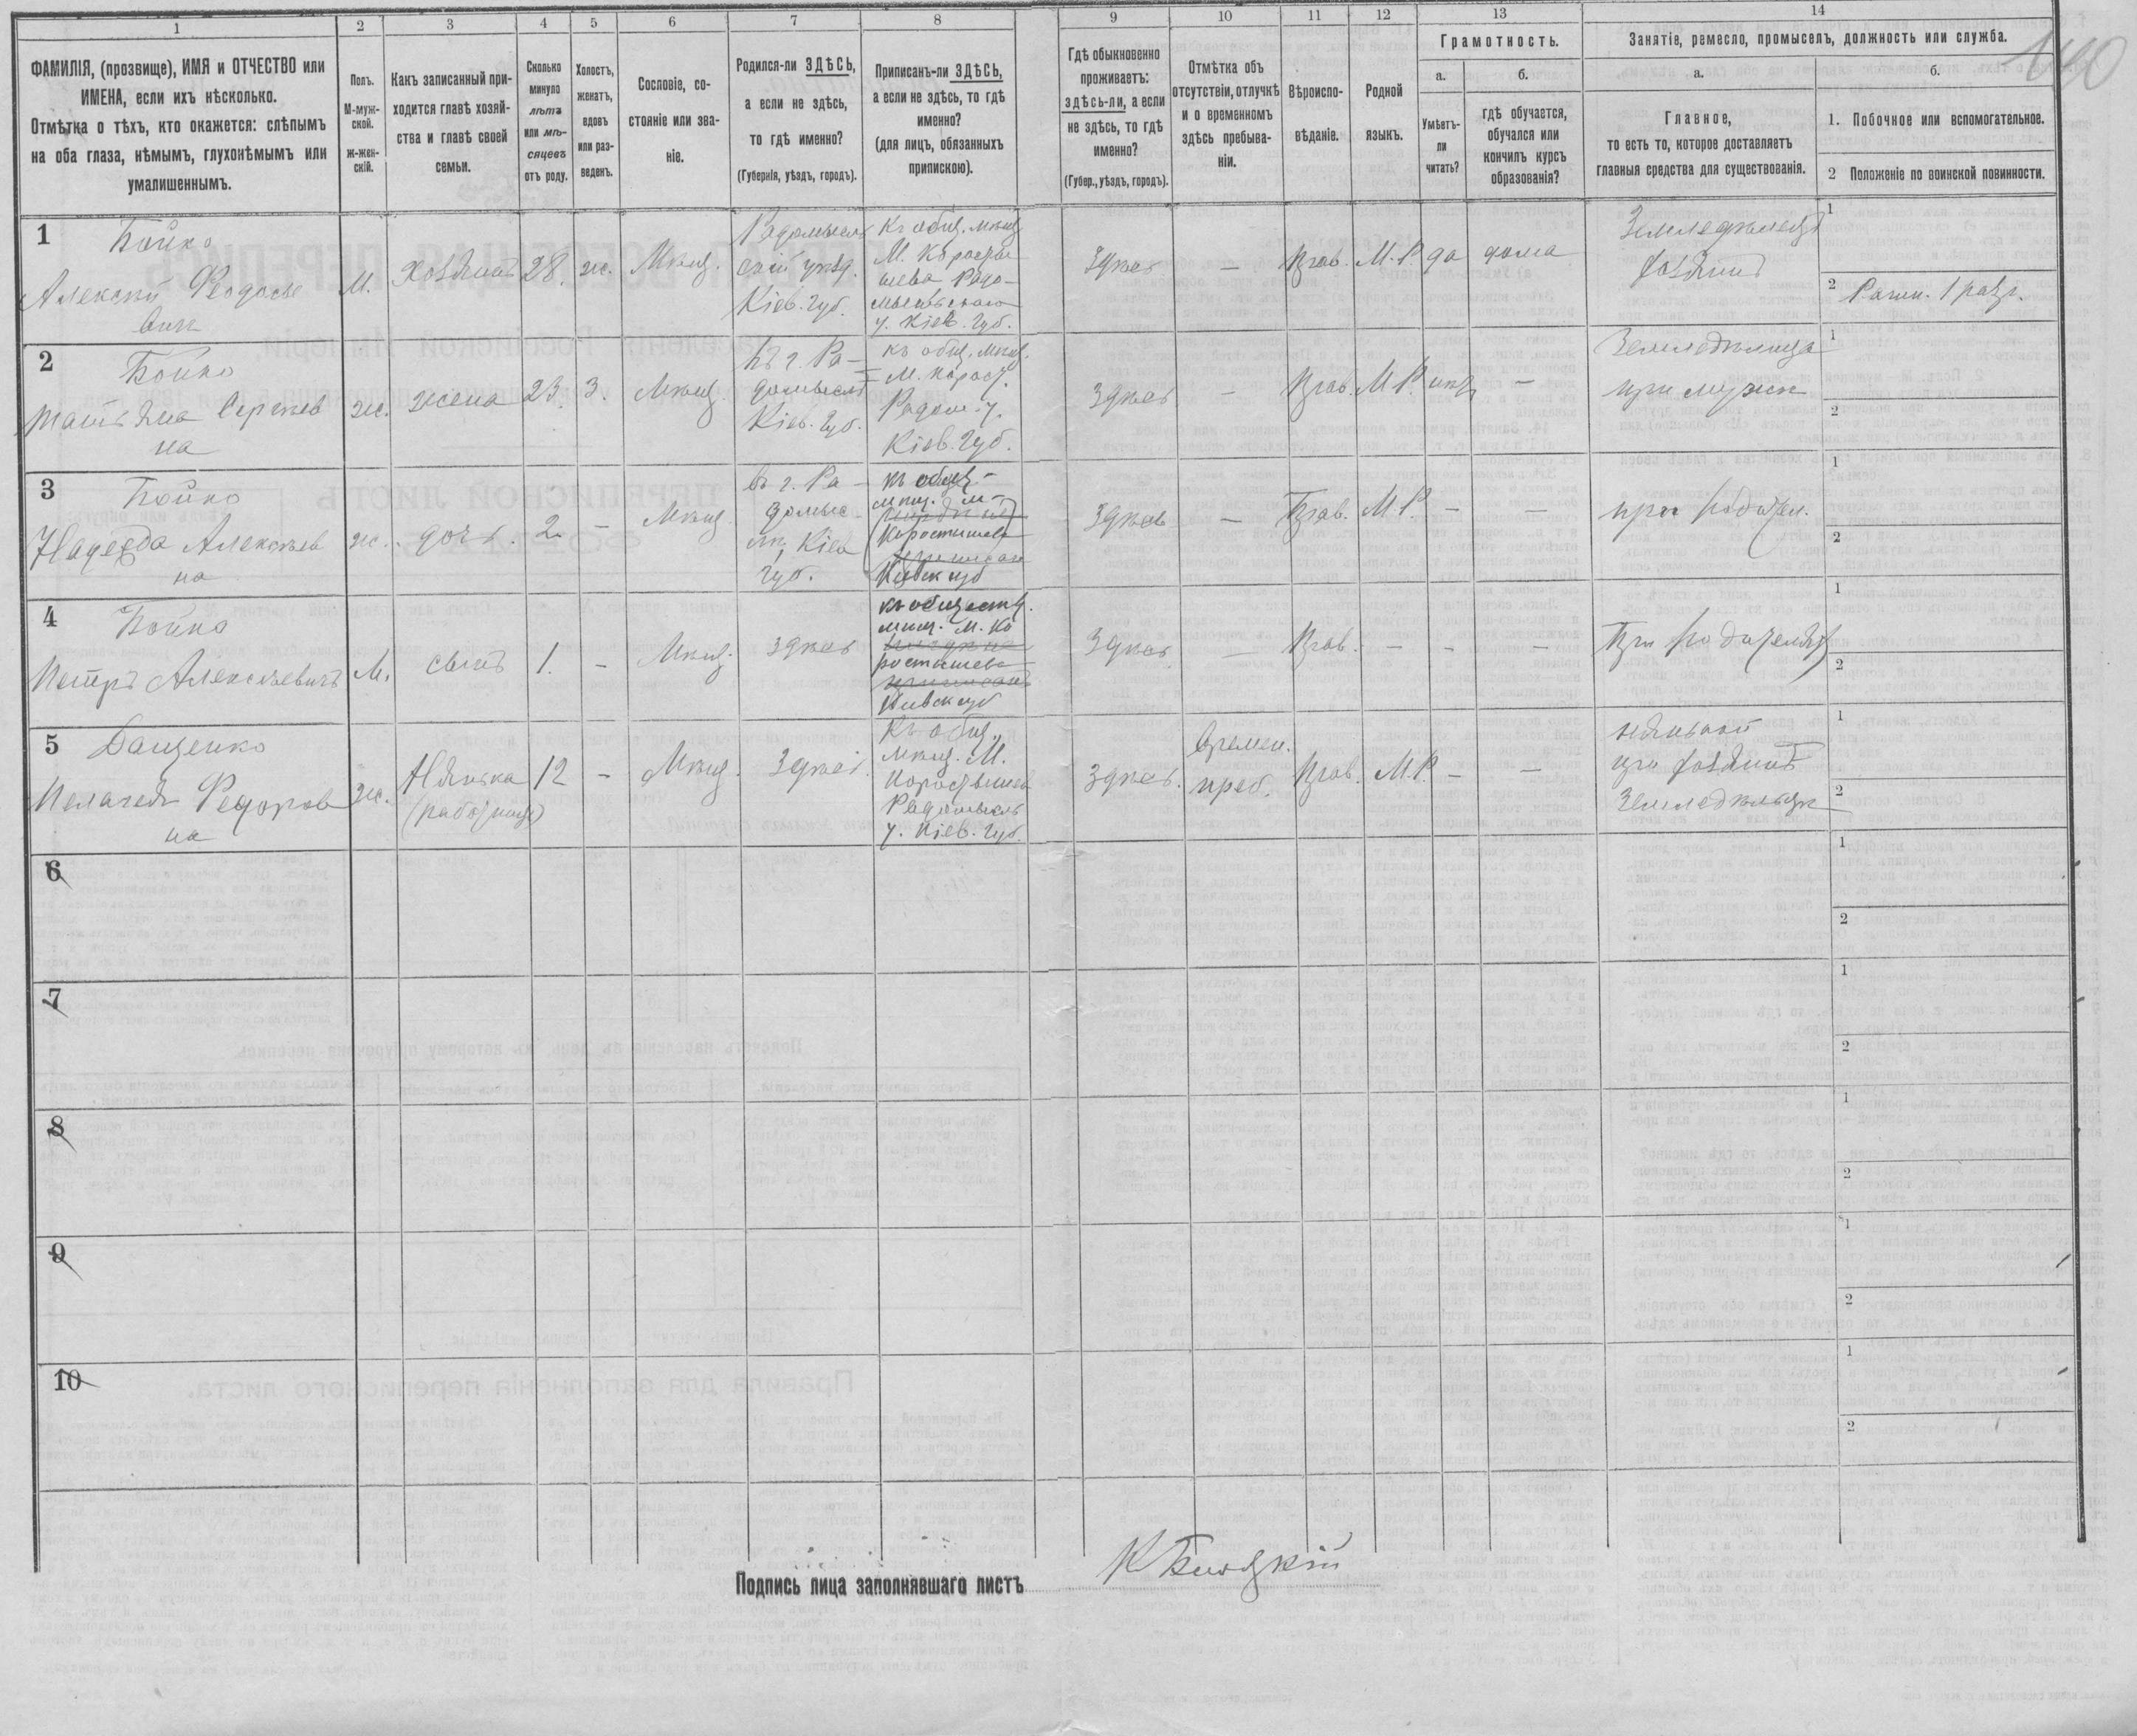 140
1 2 3 4 5 6 7 8 9 10 11 12 13 14
ФАМИЛІЯ, (прозвище), ИМЯ и ОТЧЕСТВО или
ИМЕНА, если ихъ нѣсколько.
Отмѣтка о тѣхъ, кто окажется: слѣпымъ
на оба глаза, нѣмымъ, глухонѣмымъ или
умалишеннымъ.
Полъ.
М-муж-
ской.
Ж-жен-
скій.
Какъ записанный при-
ходится главѣ хозяй-
ства и главѣ своей
семьи.
Сколько
минуло
лѣтъ
или мѣ-
сяцевъ
отъ роду.
Холостъ,
женатъ,
вдовъ
или раз-
веденъ.
Сословіе, со-
стояніе или зва-
ніе.
Родился-ли ЗДѢСЬ,
а если не здѣсь,
то гдѣ именно?
(Губернія, уѣздъ, городъ).
Приписанъ-ли ЗДѢСЬ,
а если не здѣсь, то гдѣ
именно?
(для лицъ, обязанныхъ
припискою).
Гдѣ обыкновенно
проживаетъ:
здѣсь-ли, а если
не здѣсь, то гдѣ
именно?
(Губер., уѣздъ, городъ).
Отмѣтка объ
отсутствіи, отлучкѣ
и о временномъ
здѣсь пребыва-
ніи.
Вѣроиспо-
вѣданіе.
Родной
языкъ.
Грамотность.
а.
Умѣетъ-
ли
читать?
б.
гдѣ обучается,
обучался или
кончилъ курсъ
образованія?
Занятіе, ремесло, промыселъ, должность или служба.
а.
Главное,
то есть то, которое доставляетъ
главныя средства для существованія.
б.
1. Побочное или вспомогательное.
2 Положеніе по воинской повинности.
1
Бойко
Алексѣй Феодосье
вичъ
М.
Хозяинъ
28.
ж.
Мѣщ.
Радомысль
скій уѣзд.
Кіев. губ.
Къ общ. мѣщ
М. Коросты
шева Радо-
мысльскаго
у. Кіев. губ.
Здѣсь
—
Прав.
М. Р.
да
дома
Земледѣлецъ
хозяинъ
1
2 Ратн. 1 разр.
2
Бойко
Татьяна Сергѣев
на
ж.
жена
23.
З.
Мѣщ.
Въ г. Ра-
домыслѣ
Кіев. губ.
къ общ. мѣщ.
М. Корост.
Радом. у.
Кіев. губ.
Здѣсь
—
Прав.
М. Р.
нѣт
—
Земледѣлица
при мужѣ
1
2
3
Бойко
Надежда Алексѣев
на
ж.
дочь.
2.
—
Мѣщ.
въ г. Ра-
домыс
лѣ, Кіев
губ.
къ общ-
мѣщ. М-
Коростышева
Кіевск губ
Здѣсь
—
Прав.
М. Р.
—
—
при родител.
1
2
4
Бойко
Петръ Алексѣевичъ
М.
сынъ
1.
—
Мѣщ.
здѣсь
къ обществ.
мѣщ. М. Ко
ростышева
Кіевск губ
Здѣсь
—
Прав.
—
—
—
При родителяхъ
1
2
5
Дащенко
Пелагея Федоров
на
ж.
Нянька
(работница)
12
—
Мѣщ.
Здѣсь.
Къ общ.
мѣщ. М.
Коростышев
Радомысль
у. Кіев. губ.
Здѣсь.
Времен.
преб.
Прав.
М. Р.
—
—
нянькой
при хозяинѣ
Земледѣльцѣ
1
2
6
1
2
7
1
2
8
1
2
9
1
2
10
1
2
Подпись лица заполнявшаго листъ